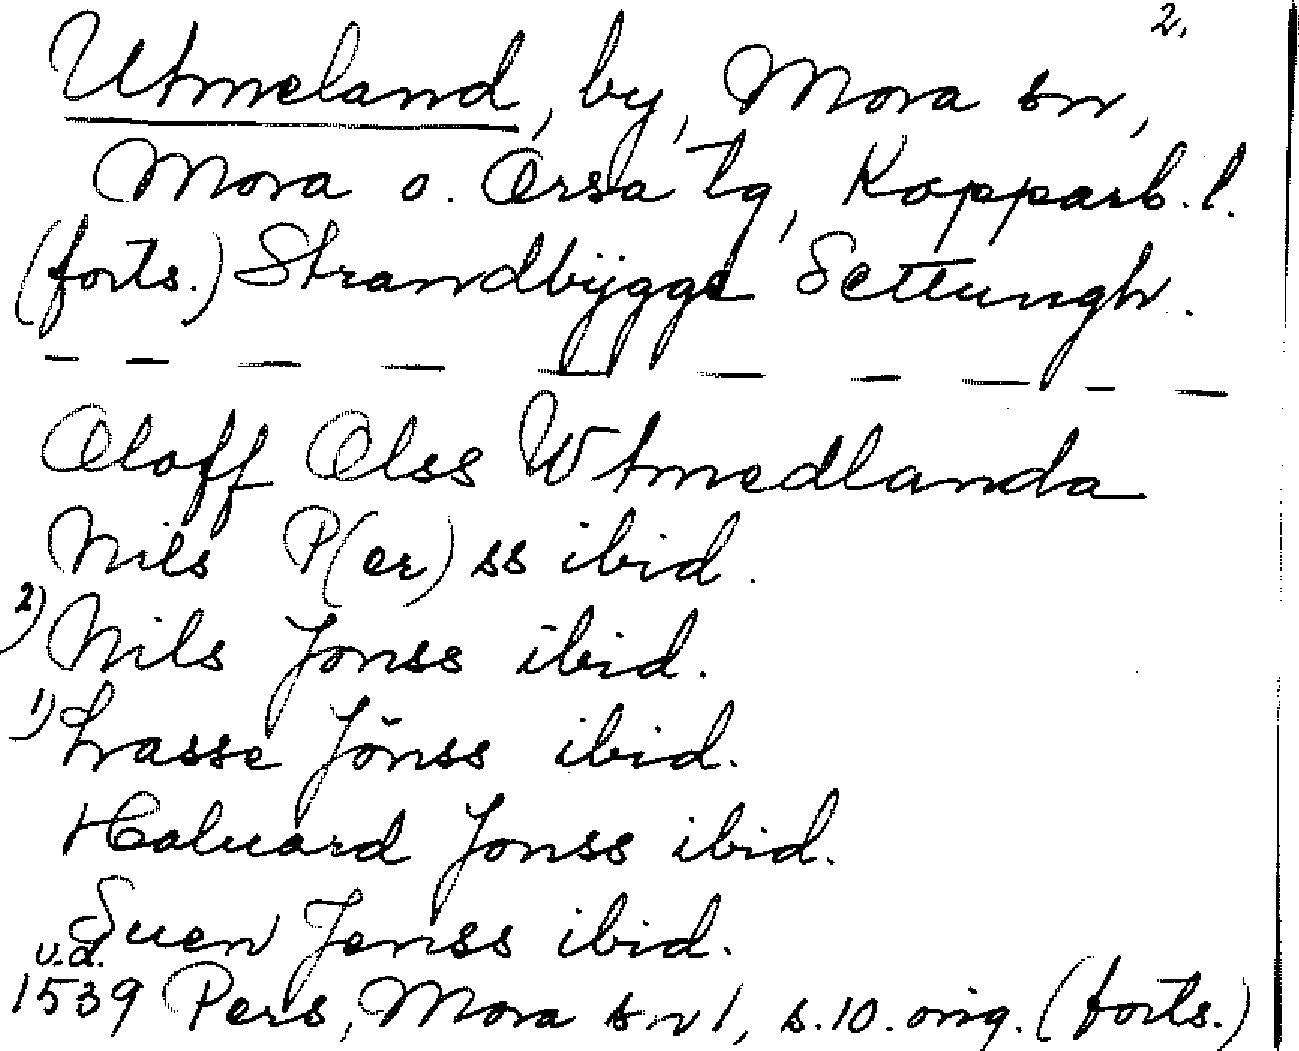 2.
Utmeland, by, Mora sn,
Mora o. Orsa tg, Kopparb. l.
(forts.) Strandbÿgge Settungh.
— — — — — — — — — —
Oloff Olss Wtmedlanda
Nils P(er)ss ibid.
2) Nils Jonss ibid.
1) Lrasse Jönss ibid.
Haluard Jonss ibid.
Suen Jenss ibid.
u.d.
1539 Pers, Mora sn 1, s. 10. orig. (forts.)